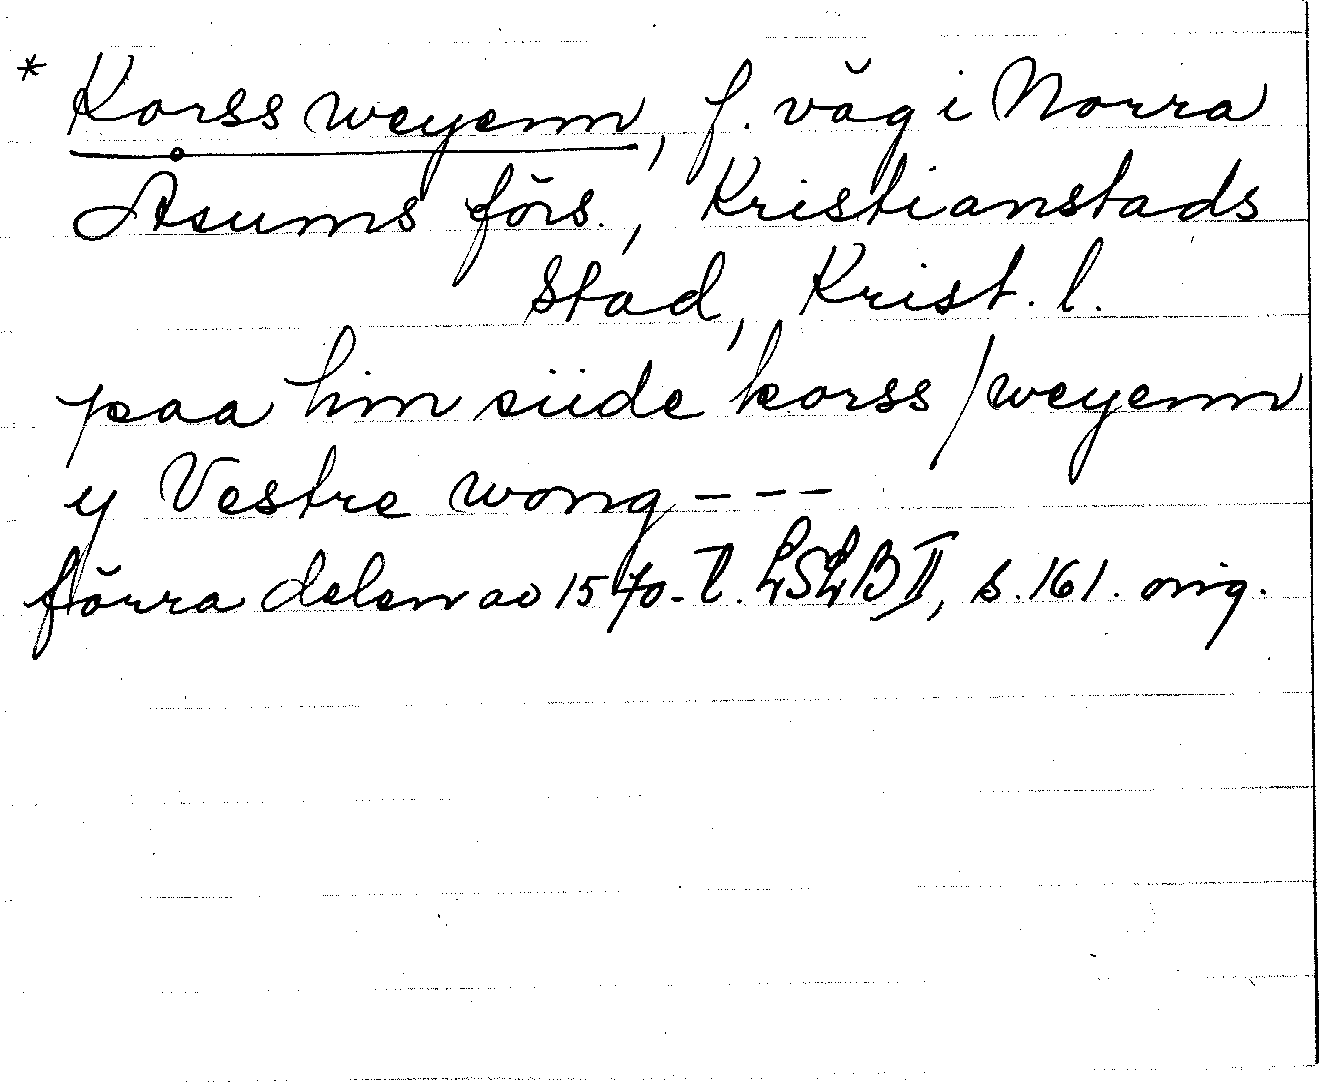 * Korss weyenn, f. väg i Norra
Åsums förs., Kristianstads
Stad, Krist. l.
paa hin siide korss / weyenn
y Vestre wong ---
förra delen av 1570-t. LSLB II, s. 161. orig.